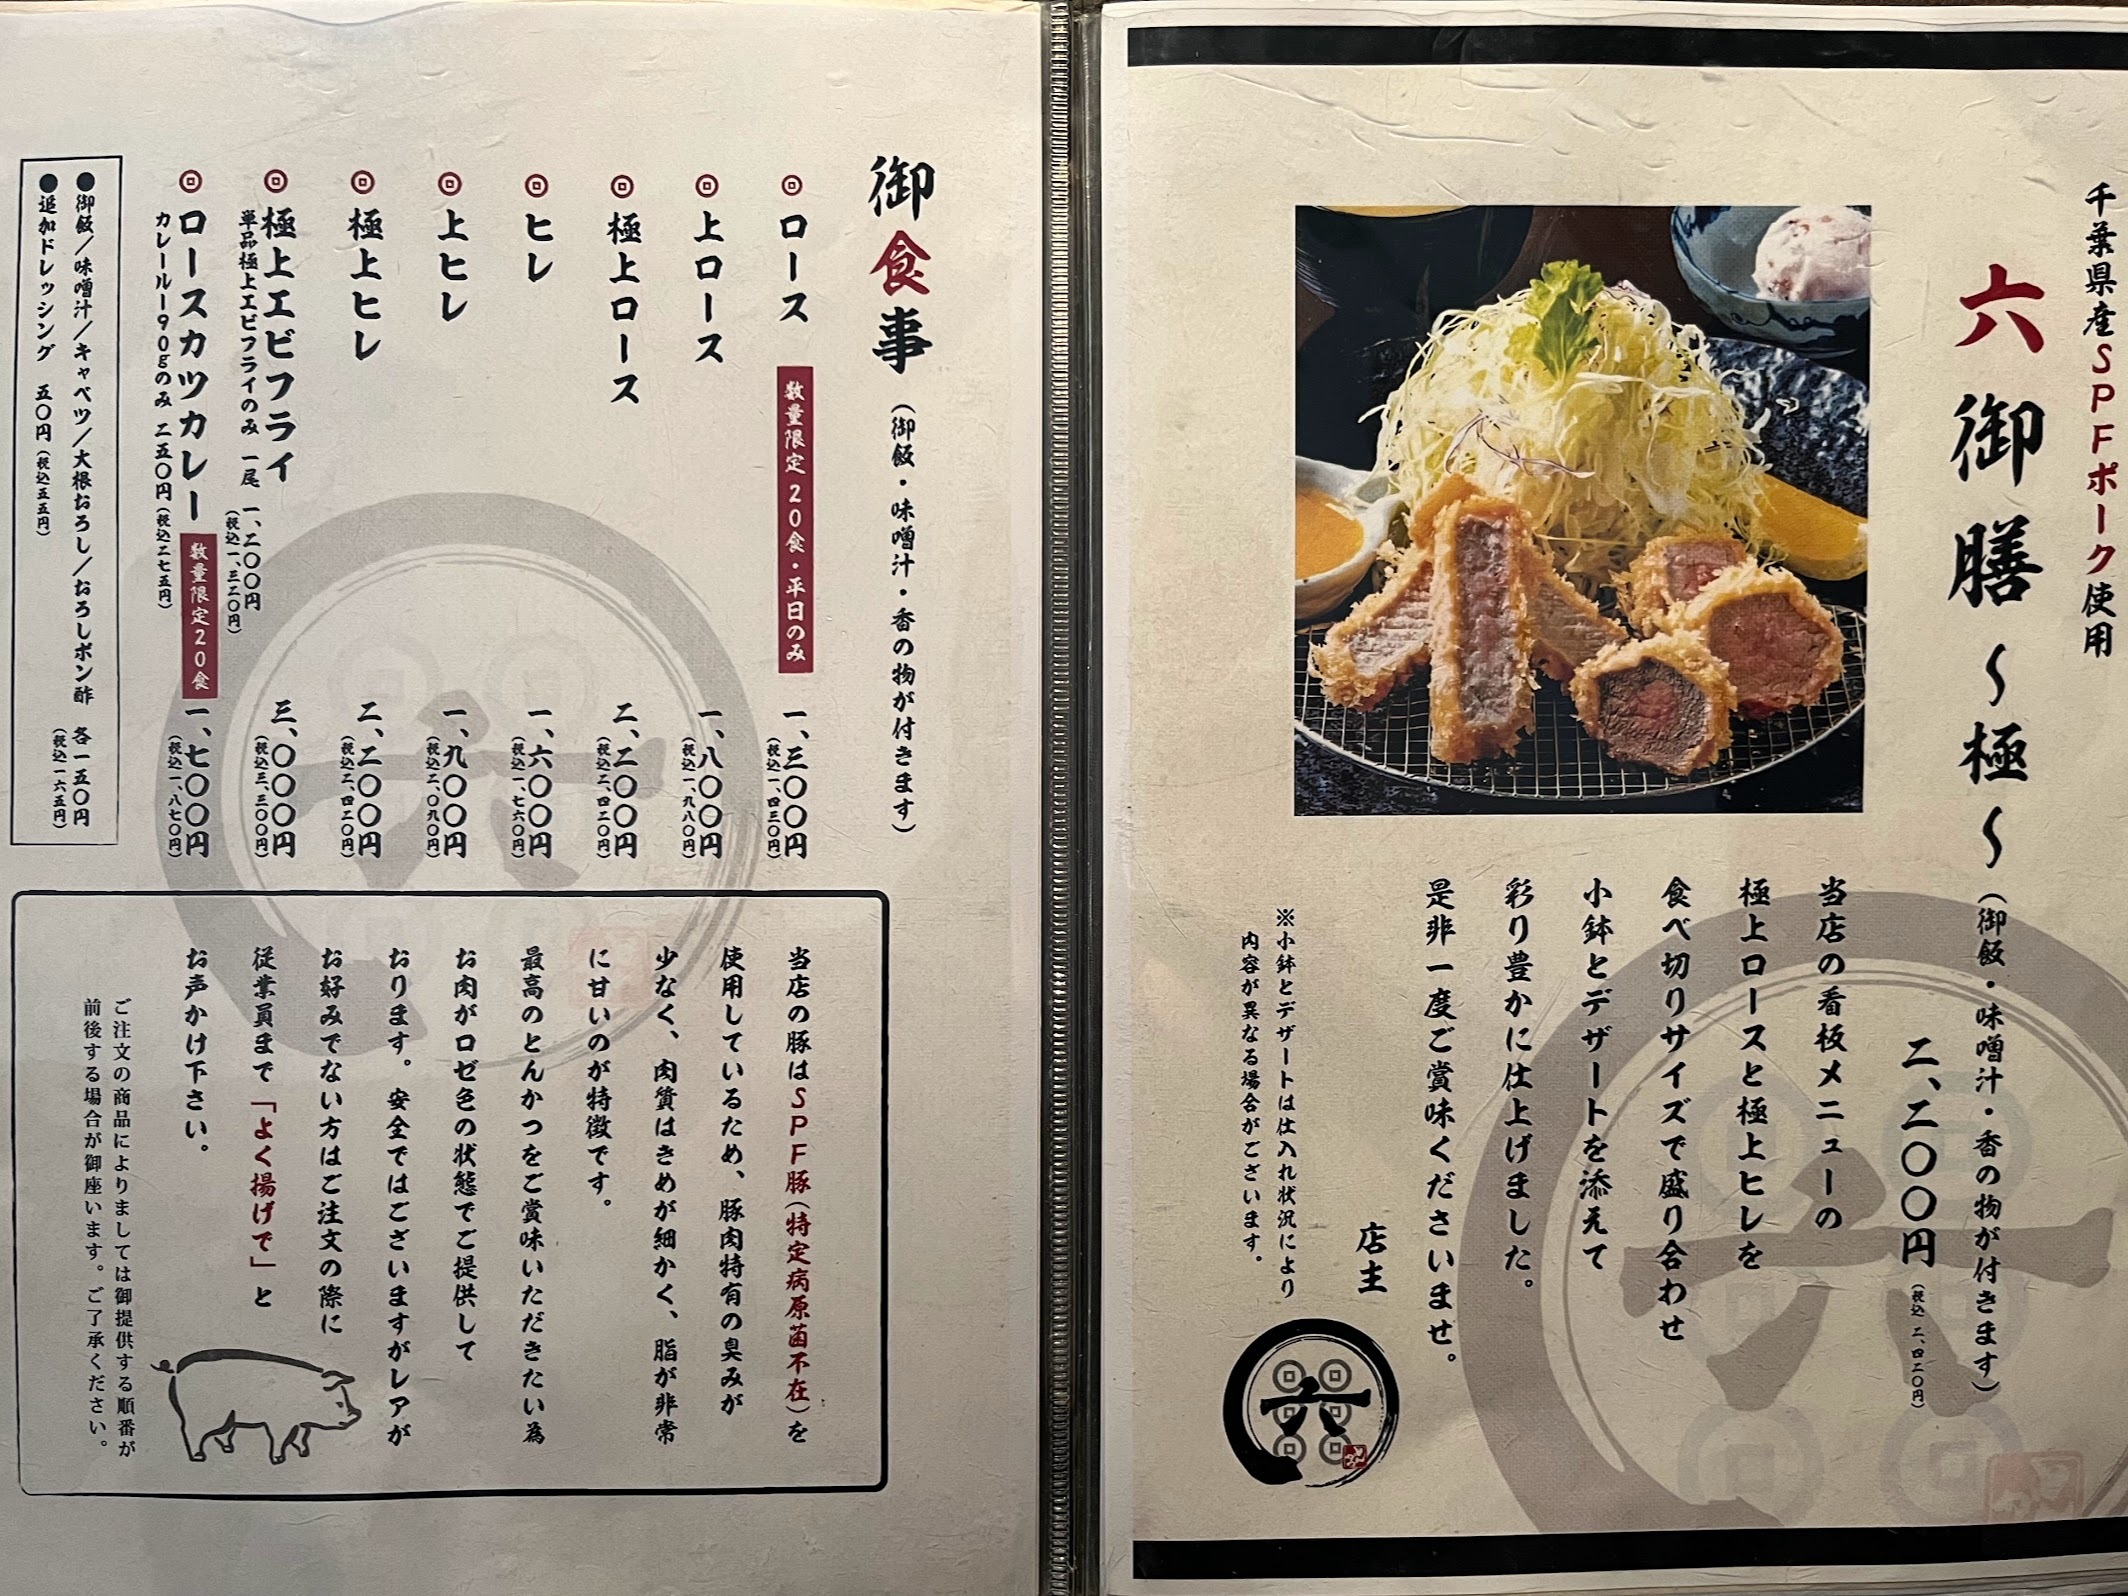 千葉県産SPFポーク使用
六御膳〜極〜（御飯・味噌汁・香の物が付きます）
二、二〇〇円（税込 二、四二〇円）
当店の看板メニューの
極上ロースと極上ヒレを
食べ切りサイズで盛り合わせ
小鉢とデザートを添えて
彩り豊かに仕上げました。
是非一度ご賞味くださいませ。
店主
※小鉢とデザートは仕入れ状況により
内容が異なる場合がございます。
六
御食事（御飯・味噌汁・香の物が付きます）
ロース 数量限定20食・平日のみ 一、三〇〇円（税込一、四三〇円）
上ロース 一、八〇〇円（税込一、九八〇円）
極上ロース 二、二〇〇円（税込二、四二〇円）
ヒレ 一、六〇〇円（税込一、七六〇円）
上ヒレ 一、九〇〇円（税込二、〇九〇円）
極上ヒレ 二、二〇〇円（税込二、四二〇円）
極上エビフライ 三、〇〇〇円（税込三、三〇〇円）
単品極上エビフライのみ 一尾 一、二〇〇円（税込一、三二〇円）
ロースカツカレー 数量限定20食 一、七〇〇円（税込一、八七〇円）
カレールー90gのみ 二五〇円（税込二七五円）
●御飯／味噌汁／キャベツ／大根おろし／おろしポン酢 各一五〇円（税込一六五円）
●追加ドレッシング 五〇円（税込五五円）
当店の豚はSPF豚（特定病原菌不在）を
使用しているため、豚肉特有の臭みが
少なく、肉質はきめが細かく、脂が非常
に甘いのが特徴です。
最高のとんかつをご賞味いただきたい為
お肉がロゼ色の状態でご提供して
おります。安全ではございますがレアが
お好みでない方はご注文の際に
従業員まで「よく揚げで」と
お声かけ下さい。
ご注文の商品によりましては御提供する順番が
前後する場合が御座います。ご了承ください。